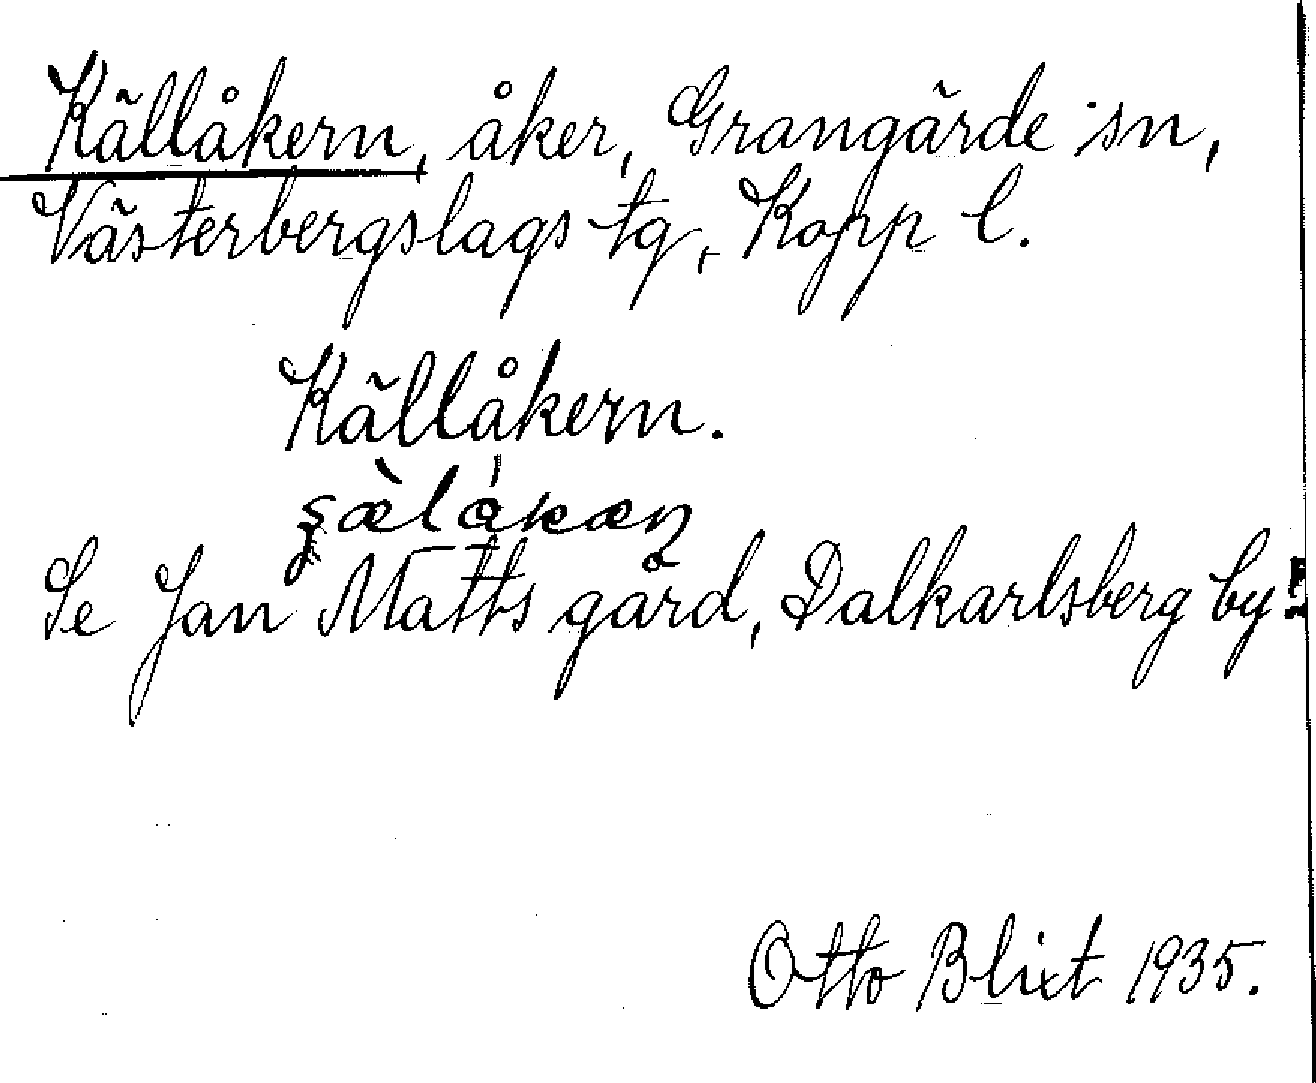 Källåkern, åker, Grangärde sn,
Västerbergslags tg, Kopp l.
Källåkern.
Se Jan Matts gård, Dalkarlsberg by.
Otto Blixt 1935.